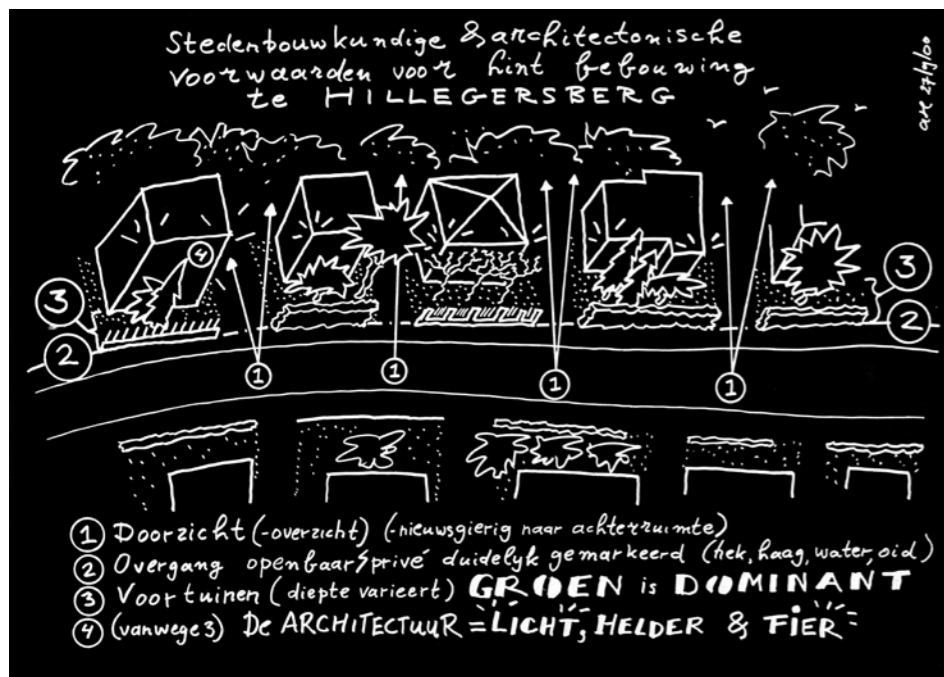 Stedenbouwkundige & architectonische
voorwaarden voor lint bebouwing
te HILLEGERSBERG
27/9/00
4
3
3
2
2
1
1
1
1
1 Doorzicht (-overzicht) (-nieuwsgierig naar achterruimte)
2 Overgang openbaar/privé duidelyk gemarkeerd (hek, haag, water, oid)
3 Voortuinen (diepte varieert) GROEN is DOMINANT
4 (vanwege 3) De ARCHITECTUUR = LICHT, HELDER & FIER